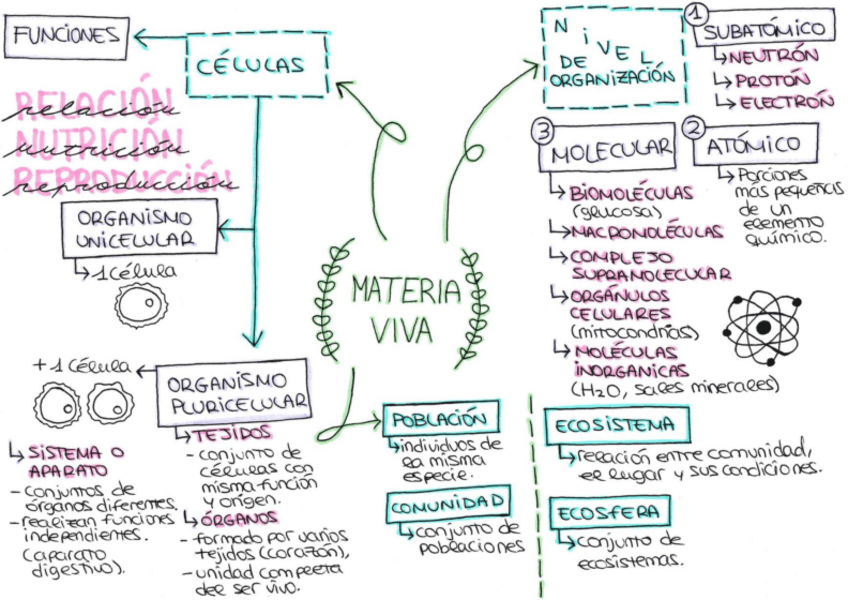 FUNCIONES
CÉLULAS
RELACIÓN
relación
NUTRICIÓN
nutrición
REPRODUCCIÓN
reproducción
ORGANISMO
UNICELULAR
1 célula
+1 célula
ORGANISMO
PLURICELULAR
SISTEMA O
APARATO
- conjuntos de
órganos diferentes.
- realizan funciones
independientes.
(aparato
digestivo).
TEJIDOS
- conjunto de
células con
misma función
y origen.
ÓRGANOS
- formado por varios
tejidos (corazón),
- unidad completa
del ser vivo.
MATERIA
VIVA
NiVEL
DE
ORGANIZACIÓN
1 SUBATÓMICO
NEUTRÓN
PROTÓN
ELECTRÓN
2 ATÓMICO
Porciones
más pequeñas
de un
elemento
químico.
3 MOLECULAR
BIOMOLÉCULAS
(glucosa)
MACROMOLÉCULAS
COMPLEJO
SUPRAMOLECULAR
ORGÁNULOS
CELULARES
(mitocondrias)
MOLÉCULAS
INORGANICAS
(H2O, sales minerales)
POBLACIÓN
individuos de
la misma
especie.
COMUNIDAD
conjunto de
poblaciones
ECOSISTEMA
relación entre comunidad,
el lugar y sus condiciones.
ECOSFERA
conjunto de
ecosistemas.